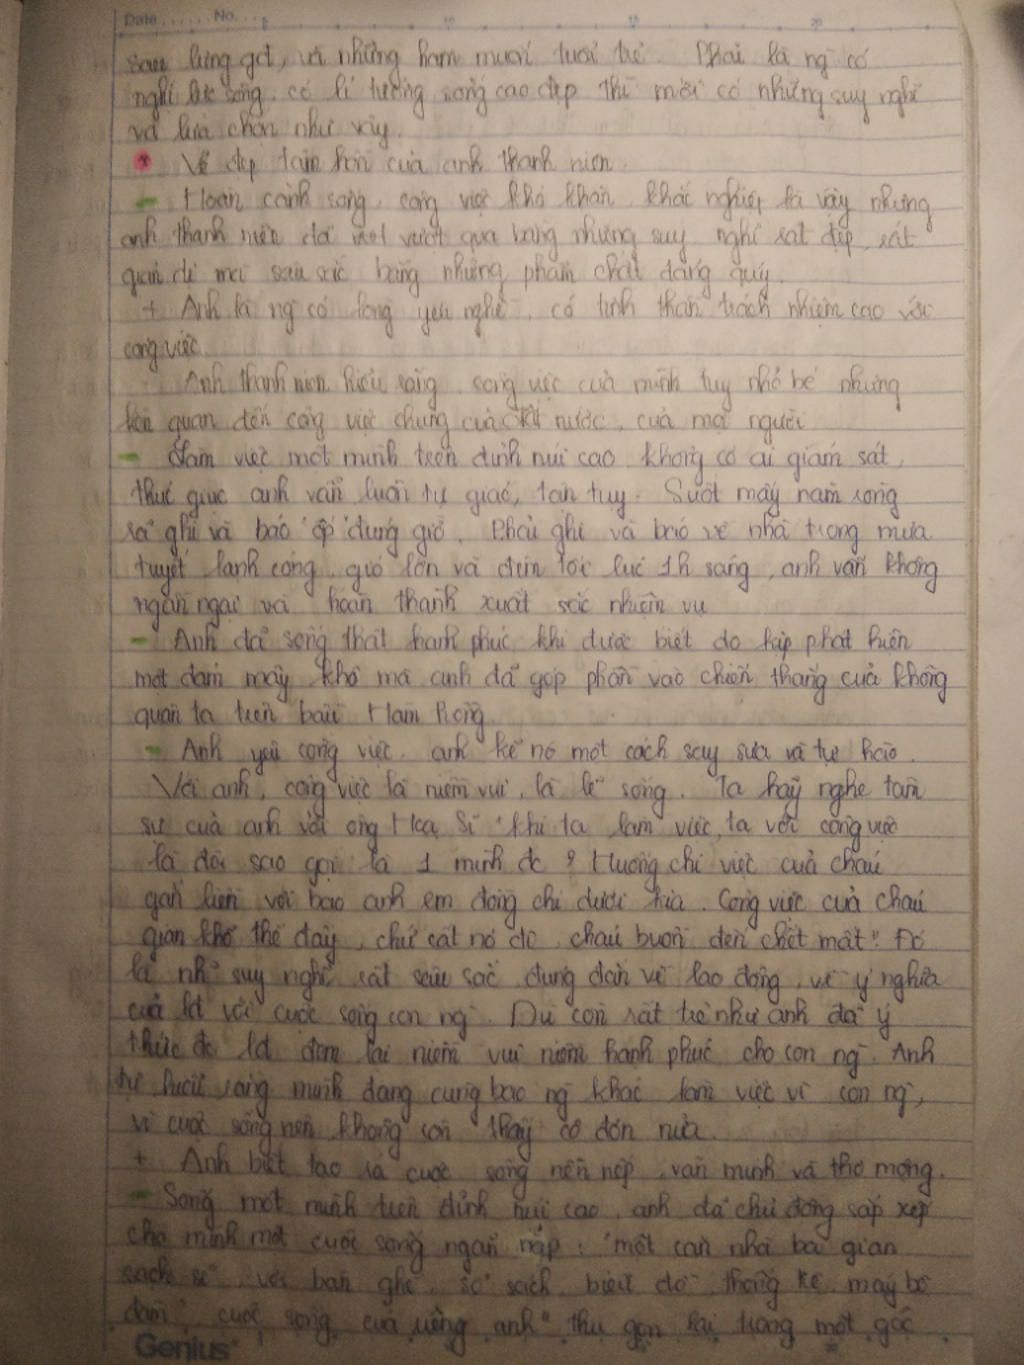 Date...... No....
sau lưng gđ, và những ham muốn tuổi trẻ. Phải là ng có
nghị lực sống, có lí tưởng sống cao đẹp thì mới có những suy nghĩ
và lựa chọn như vậy.
* Vẻ đẹp tâm hồn của anh thanh niên.
- Hoàn cảnh sống, công việc khó khăn, khắc nghiệt là vậy nhưng
anh thanh niên đã vượt qua bằng những suy nghĩ rất đẹp, rất
giản dị mà sâu sắc bằng những phẩm chất đáng quý.
+ Anh là ng có lòng yêu nghề, có tinh thần trách nhiệm cao với
công việc.
Anh thanh niên hiểu rằng, công việc của mình tuy nhỏ bé nhưng
liên quan đến công việc chung của đất nước, của mọi người
- Làm việc một mình trên đỉnh núi cao, không có ai giám sát,
thúc giục anh vẫn luôn tự giác, tận tụy. Suốt mấy năm ròng
rã ghi và báo "ốp" đúng giờ. Phải ghi và báo về nhà trong mưa
tuyết lạnh cóng, gió lớn và đêm tối lúc 1h sáng, anh vẫn không
ngần ngại và hoàn thành xuất sắc nhiệm vụ
- Anh đã sống thật hạnh phúc khi được biết do kịp phát hiện
một đám mây khô mà anh đã góp phần vào chiến thắng của không
quân ta trên bầu Hàm Rồng.
- Anh yêu công việc, anh kể nó một cách say sưa và tự hào.
Với anh, công việc là niềm vui, là lẽ sống. Ta hãy nghe tâm
sự của anh với ông Họa Sĩ "khi ta làm việc, ta với công việc
là đôi sao gọi là 1 mình đc? Huống chi việc của cháu
gắn liền với bao anh em đồng chí dưới kia. Công việc của cháu
gian khổ thế đấy, chứ cất nó đi, cháu buồn đến chết mất". Đó
là nh~ suy nghĩ rất sâu sắc, đúng đắn về lao động, về ý nghĩa
của lđ với cuộc sống con ng. Dù còn rất trẻ như anh đã ý
thức đc lđ đem lại niềm vui niềm hạnh phúc cho con ng. Anh
tự hiểu rằng mình đang cùng bao ng khác làm việc vì con ng,
vì cuộc sống nên không còn thấy cô đơn nữa.
+ Anh biết tạo ra cuộc sống nền nếp, văn minh và thơ mộng.
- Sống một mình trên đỉnh núi cao, anh đã chủ động sắp xếp
cho mình một cuộc sống ngăn nắp: "một căn nhà ba gian
sạch sẽ, với bàn ghế, sổ sách, biểu đồ, thống kê, máy bộ
đàm", cuộc sống của riêng anh "thu gọn lại trong một góc
Genius